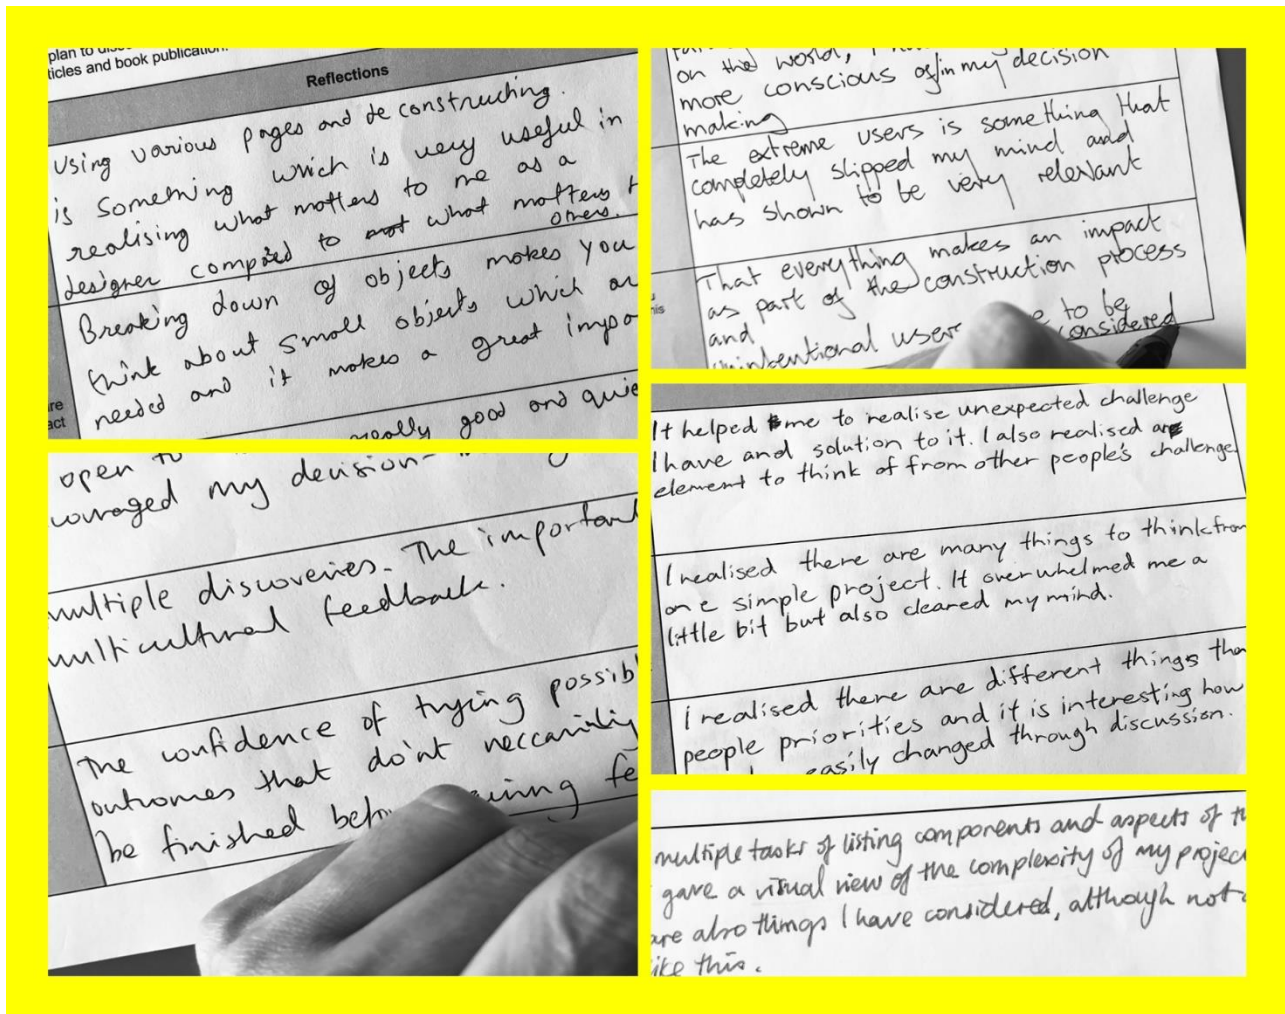 plan to
ticles and book publication.
Reflections
Using various pages and de constructing.
is something which is very useful in
realising what matters to me as a
designer compared to what matters t
others.
Breaking down of objects makes you
think about small objects which ar
needed and it makes a great impa
re
act
really good and quie
open to
couraged my decision-
multiple discoveries. The important
multicultural feedback.
The confidence of trying possib
outcomes that do'nt neccarinliy
be finished befo
on the world, I
more conscious of/in my decision
making
The extreme users is something that
completely slipped my mind and
has shown to be very relevant
That everything makes an impact
as part of the construction process
and
unintentional user e to be
considered
his
It helped me to realise unexpected challenge
I have and solution to it. I also realised are
element to think of from other people's challenge
I realised there are many things to think from
one simple project. It overwhelmed me a
little bit but also cleared my mind.
I realised there are different things tha
people priorities and it is interesting how
easily changed through discussion.
multiple tasks of listing components and aspects of th
gave a visual view of the complexity of my projec
are also things I have considered, although not
like this.